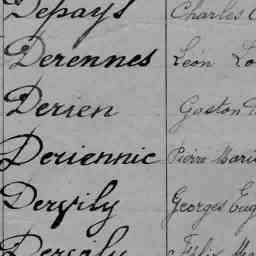 Depays Charles
Derennes Léon
Derien Gaston
Deriennic Pierre Marie
Derrily Georges Eug
Félix